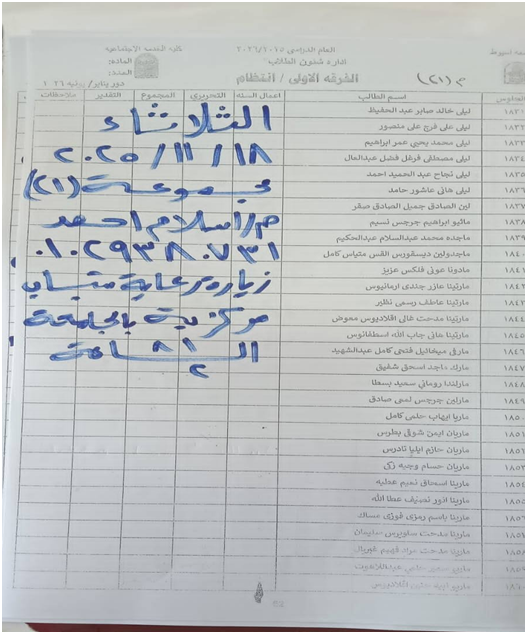 كلية الخدمة الاجتماعية
العام الدراسى ٢٠٢٦/٢٠٢٥
المادة:
إدارة شئون الطلاب
العدد:
م (٢١)
الفرقه الاولى / انتظام
دور يناير/ يونيه ٢٠٢٦
الجلوس اســم الطالب اعمال السنه التحريرى المجموع التقدير ملاحظات
ليلى خالد صابر عبد الحفيظ
ليلى على فرج على منصور
ليلى محمد يحيى عمر ابراهيم
ليلى مصطفى فرغل فضل عبدالعال
١٨٣٥ ليلى نجاح عبد الحميد احمد
ليلى هانى عاشور حامد
١٨٣٧ لين الصادق جميل الصادق صقر
١٨٣٨ ماثيو ابراهيم جرجس نسيم
١٨٣٩ ماجده محمد عبدالسلام عبدالحكيم
١٨٤٠ ماجدولين ديسقورس القس متياس كامل
١٨٤١ مادونا عونى فلكس عزيز
١٨٤٢ مارتينا عازر جندى ارمانيوس
مارتينا عاطف رسمى نظير
١٨٤٤ مارتينا مدحت غالى اقلاديوس معوض
١٨٤٥ مارتينا هانى جاب الله اسطفانوس
١٨٤٦ مارفى ميخائيل فتحى كامل عبدالشهيد
١٨٤٧ مارك ماجد اسحق شفيق
١٨٤٨ مارلندا رومانى سعيد بسطا
١٨٤٩ مارلين جرجس لمعى صادق
ماريا ايهاب حلمى كامل
ماريان ايمن شوقى بطرس
ماريان حازم ايليا تادرس
ماريان حسام وجيه زكى
مارينا اسحاق نعيم عطيه
مارينا انور نصيف عطا الله
مارينا باسم رمزى فوزى
مارينا مدحت ساويرس سليمان
مارينا مدحت مراد فهيم
الثلاثاء
٢٠٢٥/١١/١٨
مجموعة (٢١)
م/ اسلام احمد
٠١٠٢٩٣٨٠٧٣١
زيارة رعاية شباب
مركزية بالجامعة
الساعة